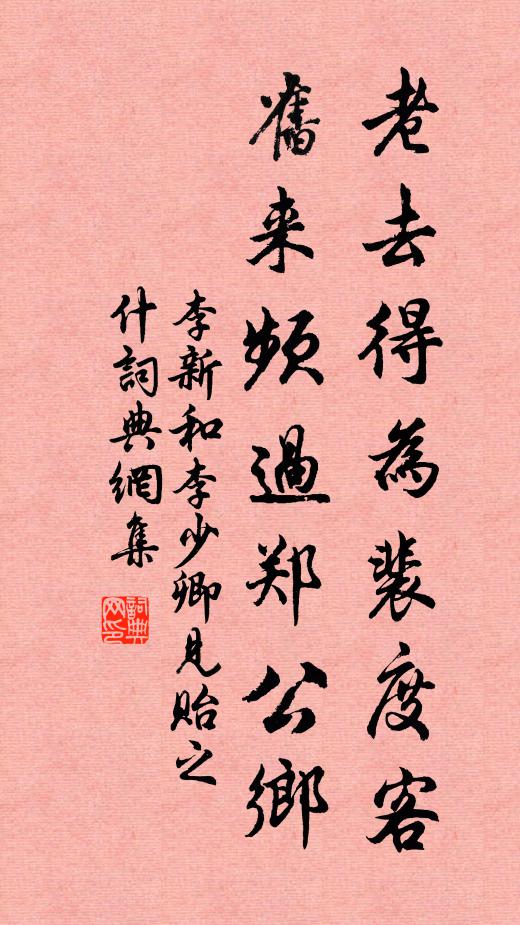 老去得為裴度客
舊来頻過郑公鄉
李新和李少卿見貽之
什詞典網集
詞典网印